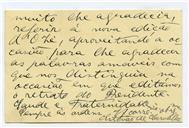 muito lhe agradeceria,
referir á nova edição
aproveitando a oc-
casião para lhe agradecer
as palavras amáveis com
que nos distinguiu na
occasião em que editámos
o retrato do Presidente
Saude e Fraternidade